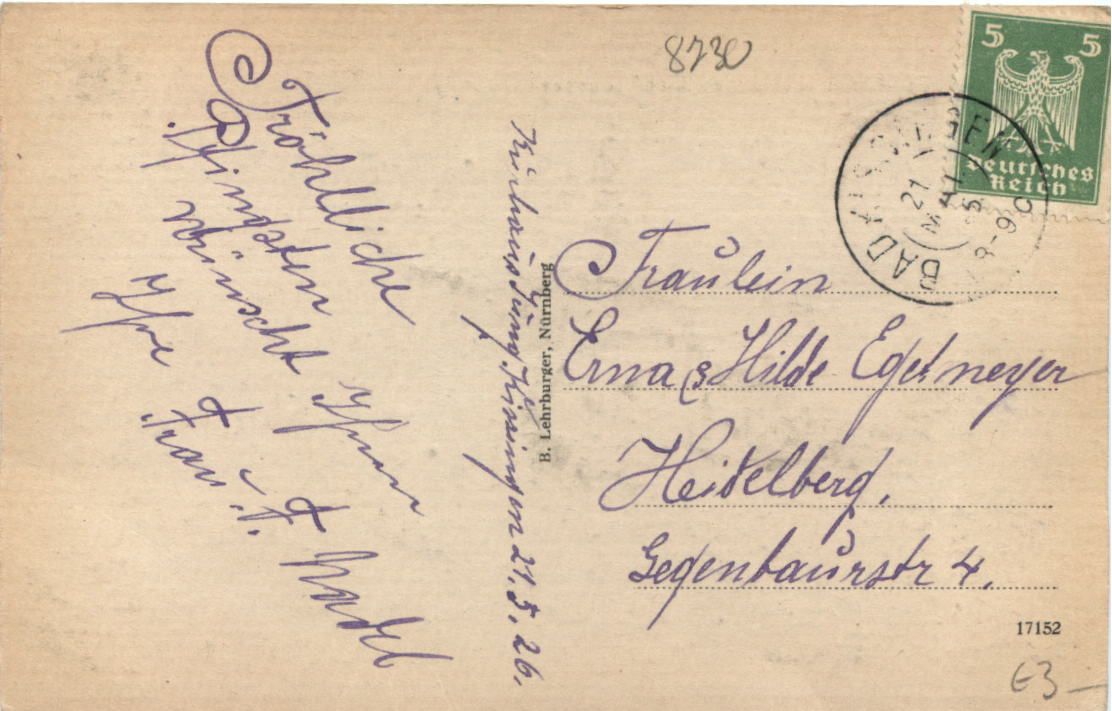 Fröhliche
Pfingsten
wünscht Ihnen
Ihre
Frau F. Nadel
Kurhaus Jung Kissingen 21.5.26.
B. Lehrburger, Nürnberg
8730
5 5
Deutsches
Reich
BAD KISSINGEN
21
MAI
8-9
Fräulein
Erna & Hilde
Heidelberg,
Gegenbaurstr 4.
17152
€3—